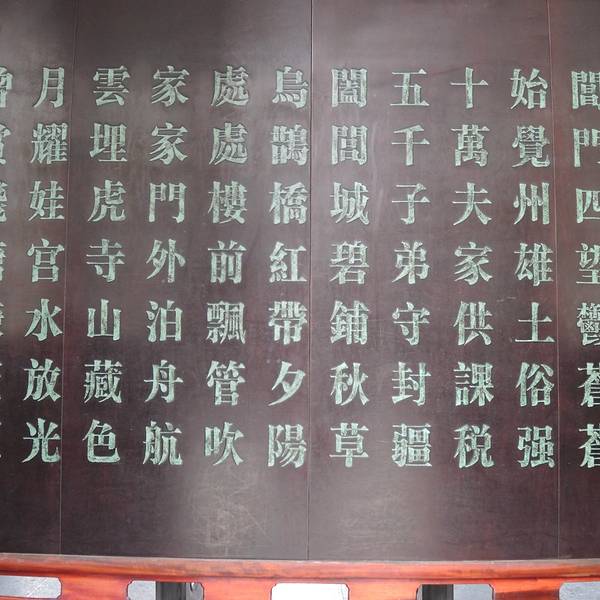 閶門四望鬱蒼蒼
始覺州雄土俗强
十萬夫家供課税
五千子弟守封疆
闔閭城碧鋪秋草
烏鵲橋紅帶夕陽
處處樓前飄管吹
家家門外泊舟航
雲埋虎寺山藏色
月耀娃宮水放光